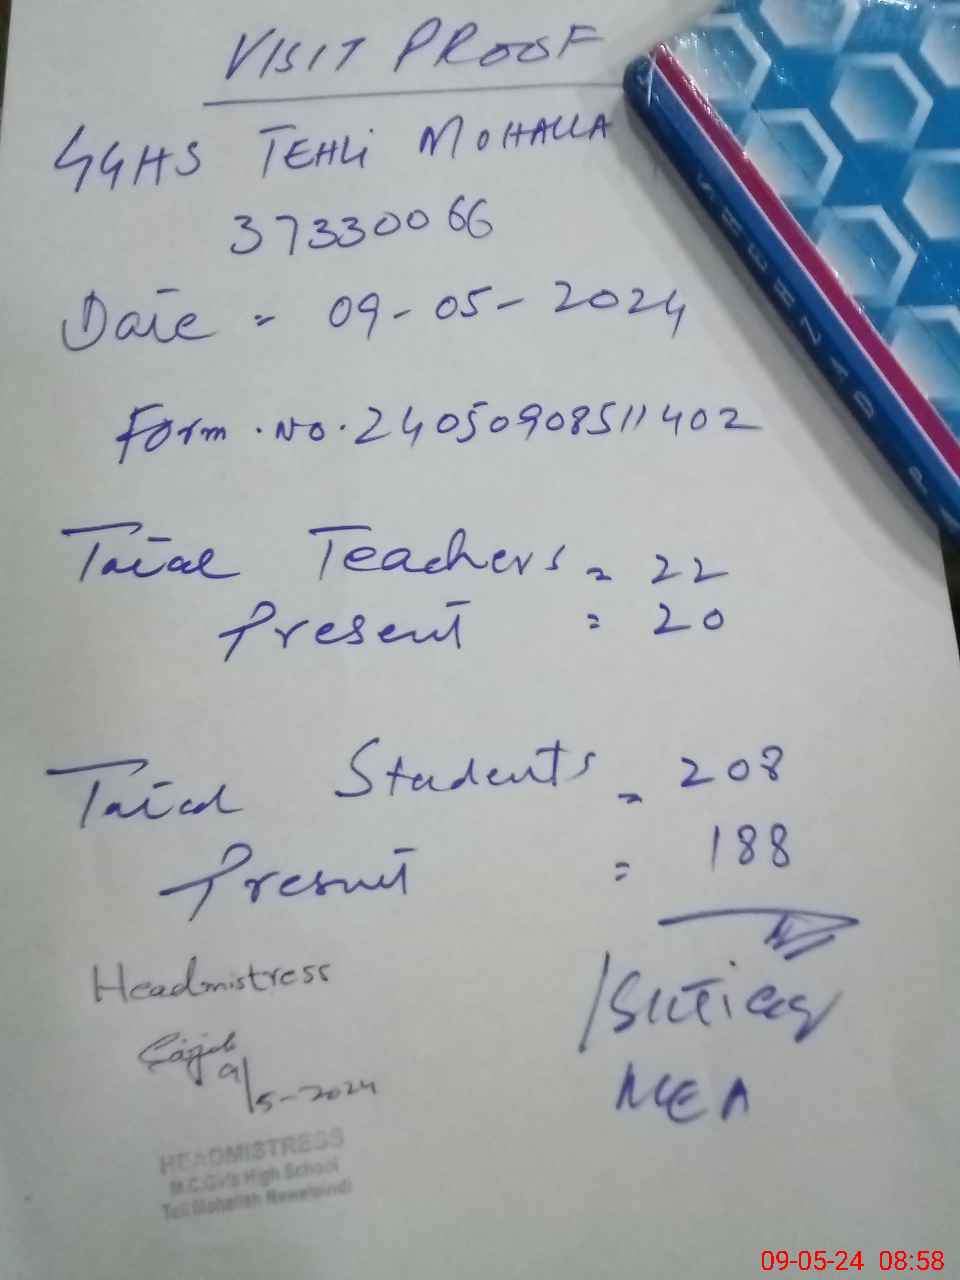 VISIT PROOF
GGHS TEHLI MOHALLA
37330066
Date = 09-05-2024
Form.No.24050908511402
Total Teachers = 22
Present = 20
Total Students = 208
Present = 188
Headmistress
9/5-2024
MEA
HEADMISTRESS
M.C.Girls High School
Teli Mohallah Rawalpindi
09-05-24 08:58